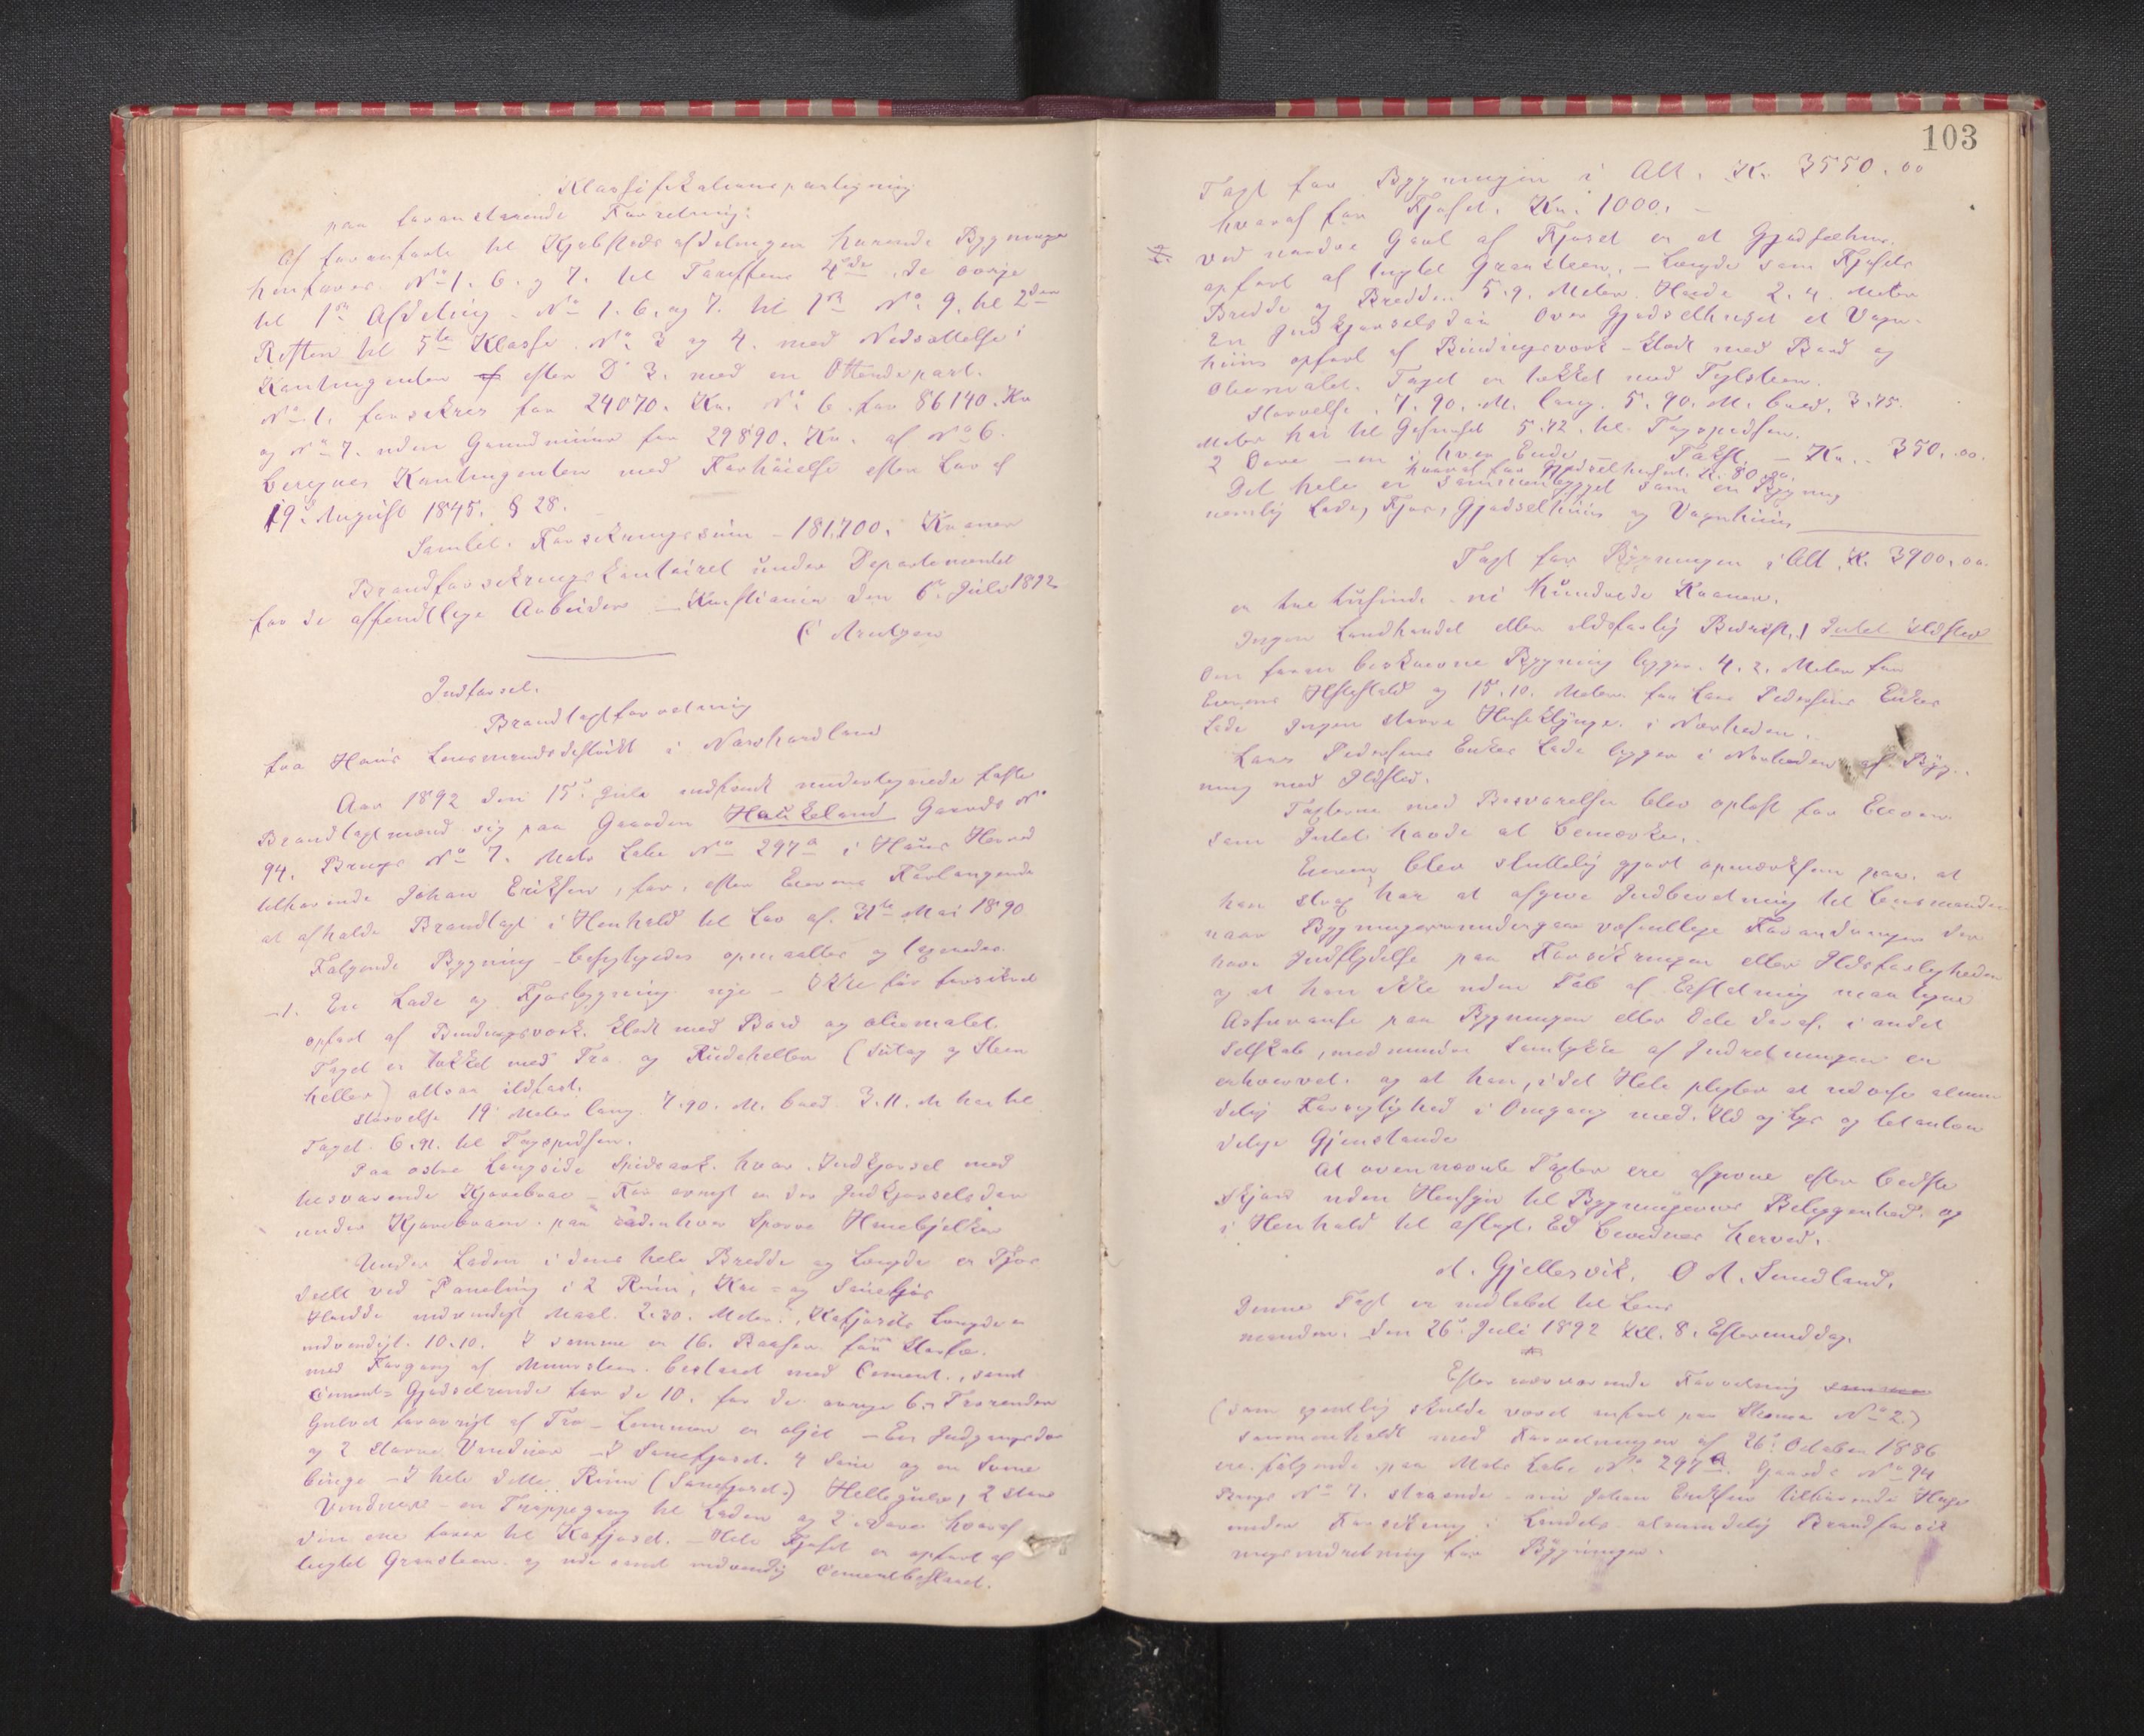 Klassifikationspaategning
paa foranstaaende Forretning:
Af foranførte til Kjøbstedsafdelingen hørende Bygninger
henføres No 1. 6. og 7. til Tariffens 4de, de øvrige
til 1ste Afdeling. No 1. 6. og 7. til 1ste No 9. til 2den
Resten til 5te Klasse. No 3 og 4. med Nedsættelse i
Kontingenten efter D 3. med en Ottendepart.
No 1. forsikres for 24070. Kr. No 6. for 86140. Kr
og No 7. uden Grundmuur for 29890. Kr. af No 6.
beregnes Kontingenten med Forhøielse efter Lov af
19de August 1845. § 28.
Samlet. Forsikringssum - 181,700. Kroner
Brandforsikringskontoiret under Departementet
for de offentlige Arbeider - Kristiania den 6te Juli 1892
C Arentzen
Indførsel.
Brandtaxtforretning
fra Haus Lensmandsdistrikt i Nordhordland
Aar 1892 den 15de Juli indfandt undertegnede faste
Brandtaxtmænd sig paa Gaarden Haukeland Gaards No
94. Brugs No 7. Matr Løbe No 297a i Haus Herred
tilhørende Johan Eriksen, for, efter Eierens Forlangende
at afholde Brandtaxt i Henhold til Lov af 31te Mai 1890
Følgende Bygning besigtigedes opmaaltes og taxeredes.
1. En Lade og Fjøsbygning nye - Ikke før forsikret
opført af Bindingsværk. klædt med Bord og oliemalet
Taget er tækket med Træ og Rudeheller (Sutag og Steen
heller) altsaa ildfast.
Størrelse 19 Meter lang 7.90. M. bred. 3.11. M høi til
Taget. 6.91. til Tagspidsen.
Paa østre Langside Spidsark. hvor Indkjørsel med
tilsvarende Kjørebroe - For øvrigt er der Indkjørselsdør
under Kjørebroen. paa hver Sperre Hanebjelker
Under Laden i dens hele Bredde og Længde er Fjøs
delt ved Paneling i 2 Rum, Koe- og Sauefjøs
Høidde indvendigt Maal. 2.30. Meter. Kofjøsets Længde er
indvendigt. 10.10. I samme er 16. Baaser for Storfæ.
med Forgang af Muursteen beslaaet med Cement., samt
Cement- Gjødselrende for de 10. for de øvrige 6. Trærender
Gulvet forøvrigt af Træ - Lemmen er oljet - En Indgangsdør
og 2 større Vinduer - I Sauefjøset. 4 Saue og en Svine
binge - I hele dette Rum (Sauefjøset) Hellegulv, 2 store
Vinduer - en Trappegang til Laden og 2 Døre hvoraf
den ene fører til Kofjøset. - Hele Fjøset er opført af
hugtet Graasteen og ude samt indvendig Cementbeslaaet.
103
Taxt for Bygningen i Alt. Kr. 3550.00
hvoraf for Fjøset. Kr. 1000. -
Ved nordre Gavl af Fjøset er et Gjødselhus.
opført af hugtet Graasteen. - Længde som Fjøsets
Bredde og Bredden 5.9. Meter Høide 2.4 Meter
En Indkjørselsdør Over Gjødselhuset et Vogn-
huus opført af Bindingsværk - klædt med Bord og
Oliemalet. Taget er tækket med Teglsteen.
Størrelse. 7.90. M. lang. 5.90. M. bred. 3.75.
Meter høi til Gesimset 5.72. til Tagspidsen.
2 Døre - en i hver Ende - Taxt - Kr. 350.00.
hvoraf for Gjødselhuset. Kr. 80.00.
Det hele er sammenbygget som en Bygning
nemlig Lade, Fjøs, Gjødselhuus og Vognhuus
Taxt for Bygningen i Alt. Kr. 3900.00.
er tre tusinde ni Hundrede Kroner.
Ingen Landhandel eller ildsfarlig Bedrift. Intet Ildsted
Den foran beskrevne Bygning ligger. 4.2. Meter fra
Eierens Hestestald og 15.10. Meter fra Lars Pedersens Enkes
Lade Ingen større Huseklynge i Nærheden.
Lars Pedersens Enkes Lade ligger i Nærheden af Byg-
ning med Ildsted.
Taxterne med Besvarelser blev oplæst for Eieren
som Intet havde at bemærke.
Eieren blev sluttelig gjort opmærksom paa, at
han strax har at afgive Indberetning til Lensmanden
naar Bygningerne undergaar væsentlige Forandringer der
have Indflydelse paa Forsikringen eller Ildsfarligheden
og at han ikke uden Tab af Erstatning maa tegne
Assurance paa Bygningen eller Dele deraf i andet
Selskab, medmindre Samtykke af Indretningen er
erhvervet. og at han, i det Hele pligter at udvise almin
delig Forsigtighed i Omgang med Ild og Lys og letanten
delige Gjenstande
At ovennævnte Taxter ere afgivne efter bedste
Skjøn uden Hensyn til Bygningernes Beliggenhed. og
i Henhold til aflagt Ed bevidnes herved.
A. Gjellesvik. O A. Sundland.
Denne Taxt er indløbet til Lens
manden. den 26de Juli 1892 Kl. 8. Eftermiddag.
Efter nærværende Forretning
(som egentlig skulde været indført paa Skema No 2.)
sammenholdt med Forretningen af 26de October 1886
ere følgende paa Matr Løbe No 297a Gaards No 94
Brugs No 7. staaende Johan Eriksen tilhørende Huse
under Forsikring i Landets almindelig Brandforsik
ringsindretning for Bygninger.